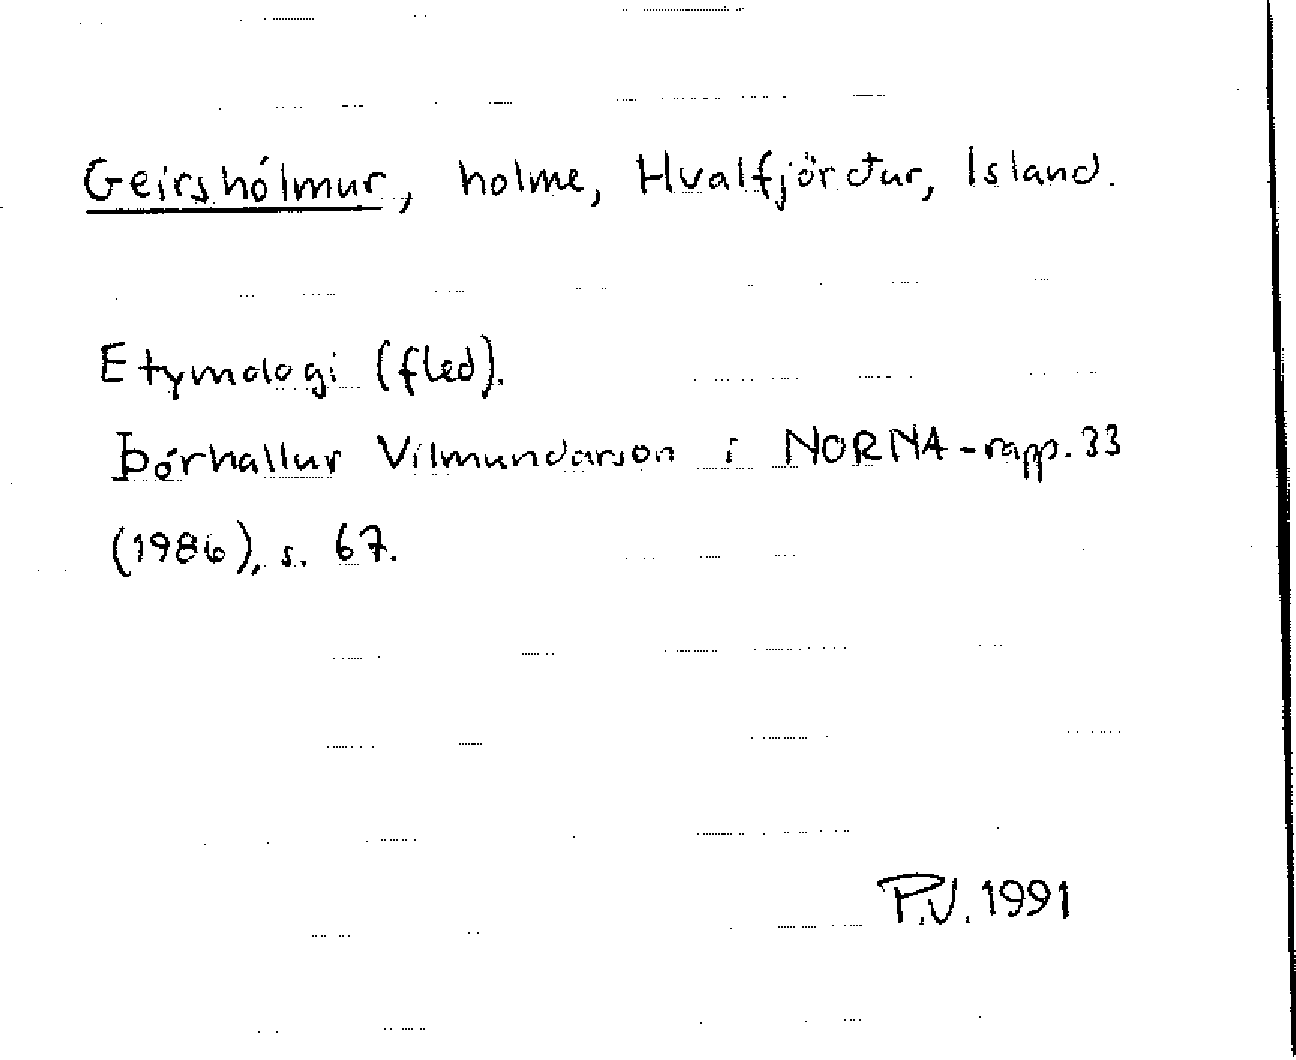 Geirshólmur, holme, Hvalfjörður, Island.
Etymologi (fled).
Þórhallur Vilmundarson i NORNA-rapp. 33
(1986), s. 67.
P.V. 1991